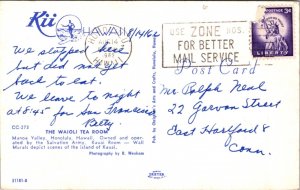 Kii
HAWAII
8/14/64
We stopped here
but did not get
back to eat.
We leave to night
at 8:45 for San Francisco
Betty
CC-273
THE WAIOLI TEA ROOM
Manoa Valley, Honolulu, Hawaii. Owned and oper-
ated by the Salvation Army. Kauai Room — Wall
Murals depict scenes of the island of Kauai.
Photography by R. Wenkam
USE ZONE NOS.
FOR BETTER
MAIL SERVICE
U.S. POSTAGE 3¢
LIBERTY
Post Card
Mr. Ralph Neal
22 Garvan Street
East Hartford 8
Conn.
DEXTER